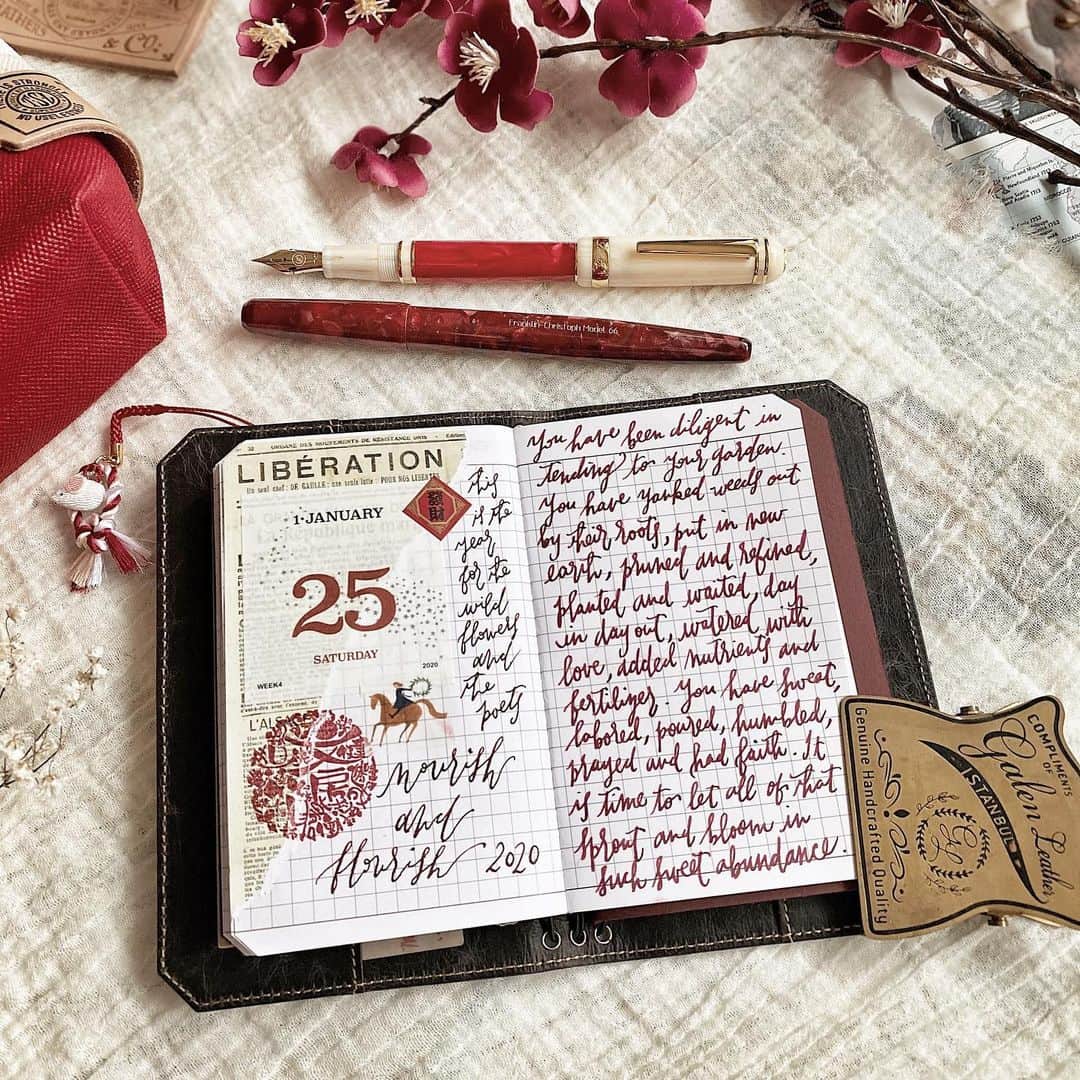 & CO.
NO USELESS
Franklin-Christoph Model 06
ORGANE DES MOUVEMENTS DE RÉSISTANCE UNIS
LIBÉRATION
Un seul chef : DE GAULLE ; une seule lutte : POUR NOS LIBERTÉS
1·JANUARY
25
SATURDAY
WEEK4
2020
L'ALS
發財
this
is the
year
for the
wild
flowers
and
the
poets
nourish
and
flourish 2020
You have been diligent in
tending to your garden.
You have yanked weeds out
by their roots, put in new
earth, pruned and refined,
planted and waited, day
in day out, watered with
love, added nutrients and
fertilizer. You have sweat,
labored, poured, humbled,
prayed and had faith. It
is time to let all of that
sprout and bloom in
such sweet abundance.
COMPLIMENTS
OF
Galen Leather
ISTANBUL
GL
Genuine Handcrafted Quality
St Pierre and Miquelon
Newfoundland 1713
Nova Scotia
and Acadia 1713
MOROCCO